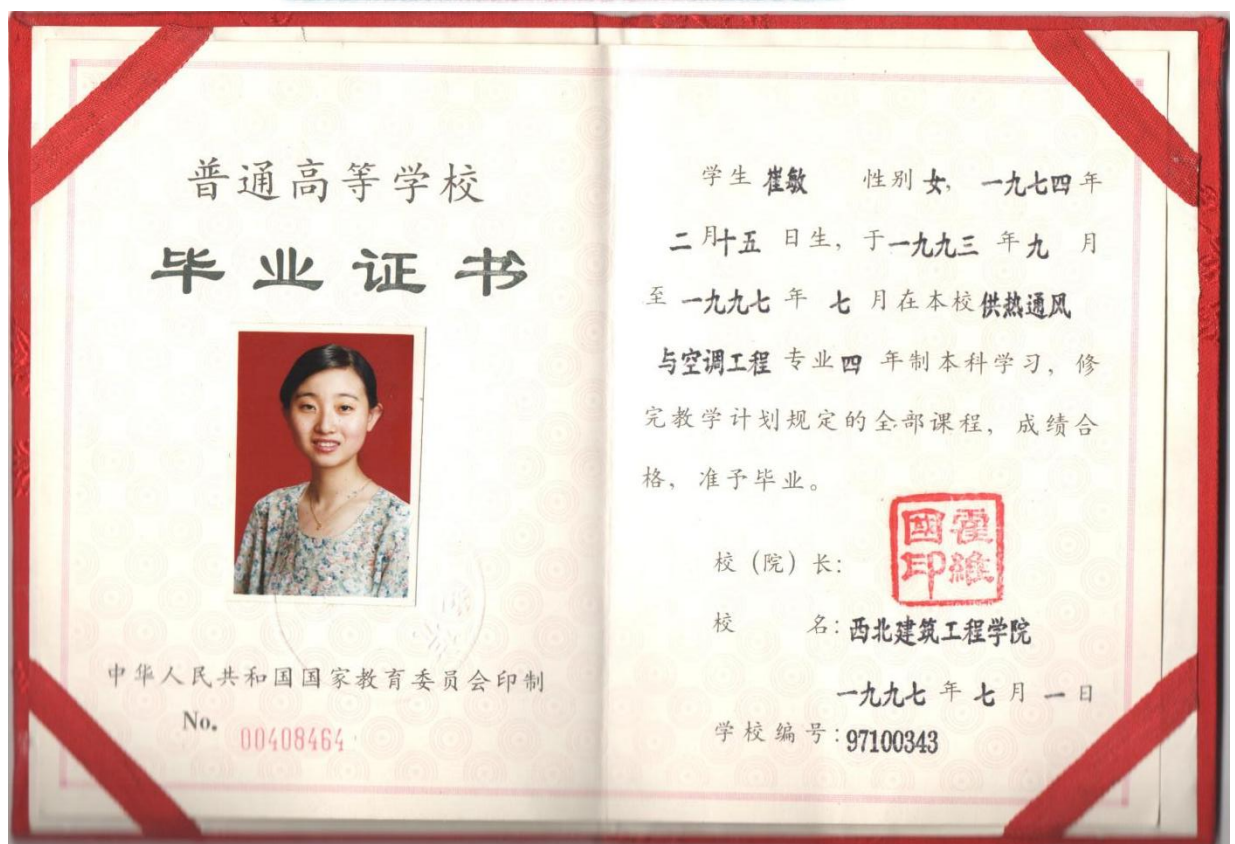 普通高等学校
毕业证书
中华人民共和国国家教育委员会印制
No. 00408464
学生 崔敏 性别 女, 一九七四年
二月十五 日生, 于一九九三 年九 月
至 一九九七 年 七 月在本校供热通风
与空调工程 专业四 年制本科学习, 修
完教学计划规定的全部课程, 成绩合
格, 准予毕业。
校 (院) 长:
國霍
印維
校 名: 西北建筑工程学院
一九九七 年 七 月 一 日
学校编号: 97100343